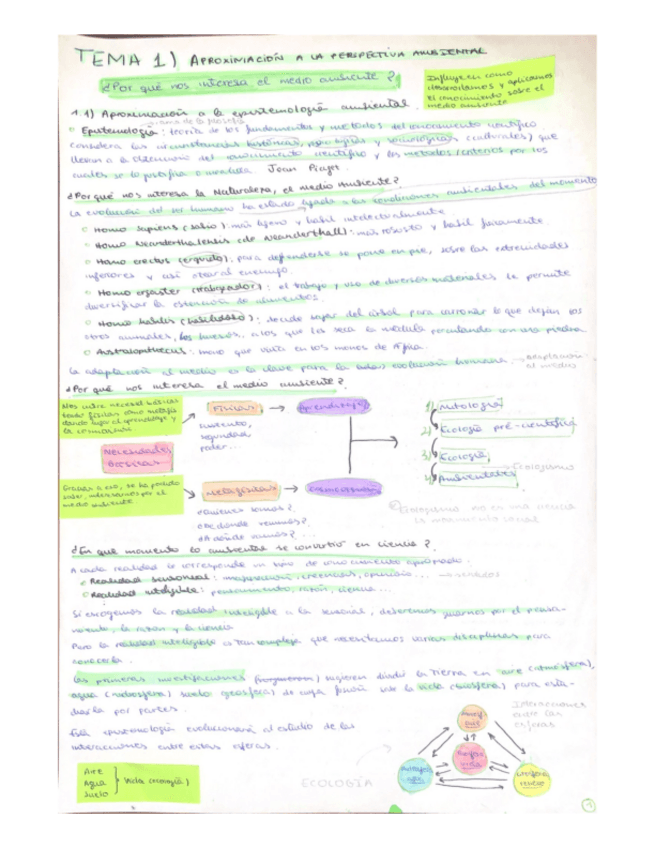 TEMA 1) APROXIMACIÓN A LA PERSPECTIVA AMBIENTAL
¿Por qué nos interesa el medio ambiente?
Influye en como desarrollamos y aplicamos el conocimiento sobre el medio ambiente
1.1) Aproximación a la epistemología ambiental.
rama de la filosofía
Epistemología: teoría de los fundamentos y métodos del conocimiento científico
considera las circunstancias históricas, y sociológicas (culturales) que
llevan a la obtención del conocimiento científico y los métodos/criterios por los
cuales se lo justifica o invalida. Jean Piaget.
¿Por qué nos interesa la Naturaleza, el medio Ambiente?
La evolución del ser humano ha estado ligada a las condiciones ambientales del momento
Homo sapiens (sabio): más ligero y hábil intelectualmente.
Homo Neanderthalensis (de Neanderthal): más robusto y hábil físicamente.
Homo erectus (erguido): para defenderse se pone en pie, sobre las extremidades
inferiores y así otear al enemigo.
Homo ergaster (trabajador): el trabajo y uso de diversos materiales le permite
diversificar la obtención de alimentos.
Homo habilis (habilidoso): decide bajar del árbol para carroñar lo que dejan los
otros animales, los huesos, a los que les saca la médula percutiendo con una piedra.
Australopithecus: mono que vivía en los monos de África.
La adaptación al medio es la clave para la evolución humana → adaptación al medio
¿Por qué nos interesa el medio ambiente?
Necesidades básicas
Físicas → Aprendizaje
sustento, seguridad, poder...
Metafísicas → Cosmovisión
¿Quiénes somos?
¿De dónde venimos?
¿A dónde vamos?...
1) Mitología
2) Ecología pre-científica
3) Ecología
→ Ecologismo
4) Ambientales
Ecologismo no es una ciencia
es movimiento social
¿En qué momento lo ambiental se convirtió en ciencia?
A cada realidad le corresponde un tipo de conocimiento apropiado.
Realidad sensorial: imaginación, creencias, opinión... → sentidos
Realidad inteligible: pensamiento, razón, ciencia...
Si escogemos la realidad inteligible a la sensorial, deberemos guiarnos por el pensa-
miento, la razón y la ciencia
Pero la realidad inteligible es tan compleja que necesitamos varias disciplinas para
conocerla.
Las primeras investigaciones sugieren dividir la Tierra en aire (atmósfera),
agua (hidrosfera) suelo (geosfera) de cuya fusión sale la vida (biosfera) para estu-
diarla por partes.
Esta epistemología evolucionará al estudio de las
interacciones entre estas esferas.
Interacciones entre las esferas
Aire
Agua
Suelo
Vida (ecología)
ECOLOGÍA
1